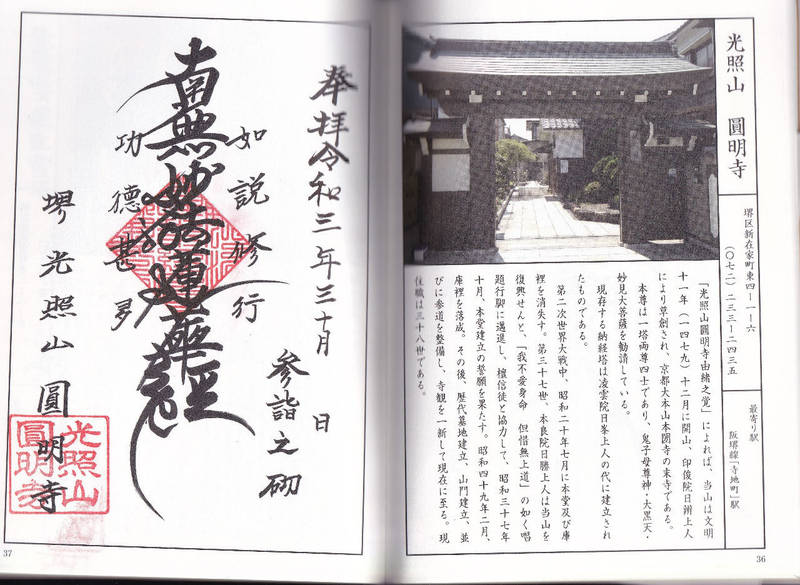 光照山 圓明寺
堺区新在家町東四ー一ー六
(〇七二)二三三ー二四三五
最寄り駅
阪堺線「寺地町」駅
「光照山圓明寺由緒之覚」によれば、当山は文明
十一年(一四七九)十二月に開山、印俊院日辨上人
により草創され、京都大本山本圀寺の末寺である。
本尊は一塔両尊四士であり、鬼子母尊神・大黒天・
妙見大菩薩を勧請している。
現存する納経塔は凌雲院日峯上人の代に建立され
たものである。
第二次世界大戦中、昭和二十年七月に本堂及び庫
裡を消失す。第三十七世、本良院日勝上人は当山を
復興せんと、「我不愛身命 但惜無上道」の如く唱
題行脚に邁進し、檀信徒と協力して、昭和三十七年
十月、本堂建立の誓願を果たす。昭和四十九年二月、
庫裡を落成。その後、歴代墓地建立、山門建立、並
びに参道を整備し、寺観を一新して現在に至る。現
住職は三十八世である。
36
奉拝令和三年 月 日
参詣之砌
如説修行
南無妙法蓮華経
功徳甚多
堺光照山圓明寺
光照山
圓明寺
37